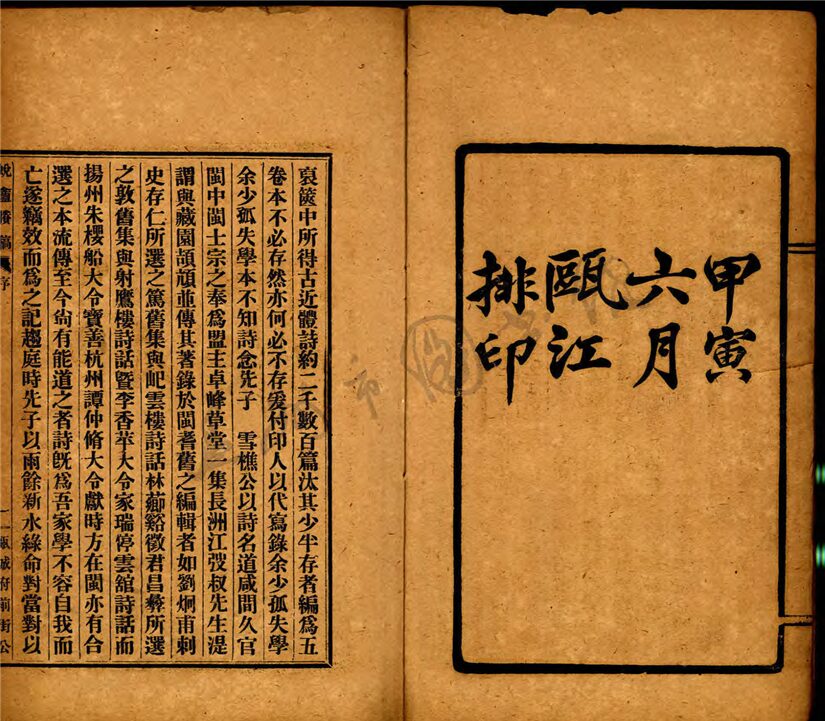 甲寅
六月
甌江
排印
裒篋中所得古近體詩約二千數百篇汰其少半存者編爲五
卷本不必存然亦何必不存爰付印人以代寫錄余少孤失學
余少孤失學本不知詩念先子　雪樵公以詩名道咸間久官
閩中閩士宗之奉爲盟主卓峰草堂一集長洲江弢叔先生湜
謂與藏園頡頏並傳其著錄於閩耆舊之編輯者如劉炯甫刺
史存仁所選之篤舊集與屺雲樓詩話林薌谿徵君昌彝所選
之敦舊集與射鷹樓詩話暨李香苹大令家瑞停雲舘詩話而
揚州朱櫻船大令寶善杭州譚仲脩大令獻時方在閩亦有合
選之本流傳至今尙有能道之者詩旣爲吾家學不容自我而
亡遂竊效而爲之記趨庭時先子以雨餘新水綠命對當對以
蛻盦賸稿　序　一　甌城府前街公